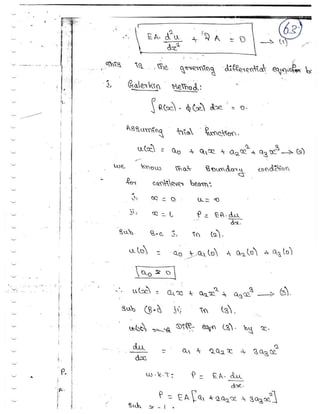 63
EA. d²u/dx² + A = 0 → (1)
This is the governing differential equation
i, Galerkin Method:
∫ R(x) . φ(x) dx = 0.
Assuming trial function.
u(x) = a₀ + a₁x + a₂x² + a₃x³ → (2)
we know that Boundary condition
for cantilever beam:
i, x = 0 u = 0
ii, x = L P = EA. du/dx.
Sub B.c i, in (2).
u(0) = a₀ + a₁(0) + a₂(0) + a₃(0)
a₀ = 0
∴ u(x) = a₁x + a₂x² + a₃x³ → (3).
Sub (B.c) ii, in (3).
Diff. eqn (3). by x.
du/dx = a₁ + 2a₂x + 3a₃x²
P.
w.k.T; P = EA. du/dx.
P = EA[a₁ + 2a₂x + 3a₃x²]
Sub